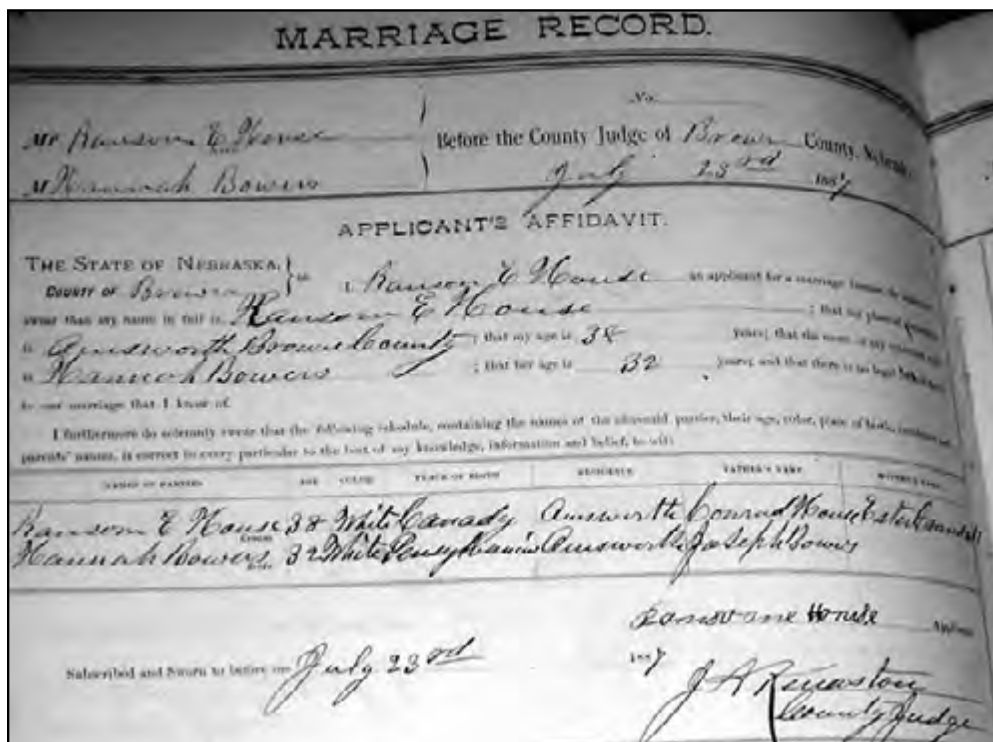 MARRIAGE RECORD.
No.
Mr Ransom E House
Before the County Judge of Brown County, Nebraska
M Hannah Bowers
July 23rd 1887
APPLICANT'S AFFIDAVIT.
THE STATE OF NEBRASKA, } ss.
COUNTY OF Brown
I, Ransom E House an applicant for a marriage license, do
swear that my name in full is Ransom E House ; that my place of
is Ainsworth Brown County ; that my age is 38 years; that the name of my
is Hannah Bowers ; that her age is 32 years; and that there is no legal
to our marriage that I know of.
I furthermore do solemnly swear that the following schedule, containing the names of the aforesaid parties, their age, color, place of birth, residence and
parents' names, is correct in every particular to the best of my knowledge, information and belief, to-wit:
NAMES OF PARTIES AGE COLOR PLACE OF BIRTH RESIDENCE FATHER'S NAME MOTHER'S NAME
Ransom E House 38 White Canady Ainsworth Conrad House Ester
Groom
Hannah Bowers 32 White Ainsworth Joseph Bowers
Bride
House Applicant
Subscribed and Sworn to before me July 23rd 1887
County Judge